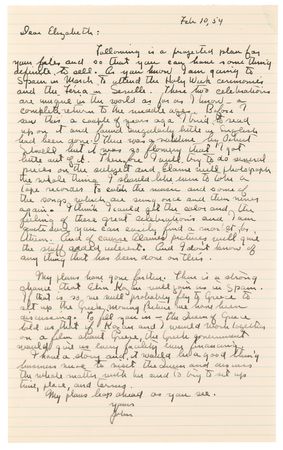 Feb. 10, 54
Dear Elizabeth:
Following is a projected plan for
your files and so that you can have something
definite to sell. As you know, I am going to
Spain in March to attend the Holy Week ceremonies
and the Feria in Seville. These two celebrations
are unique in the world as far as I know - a
complete return to the middle ages. Before I
saw this a couple of years ago I tried to read
up on it and found singularly little in English
had been done. There was a volume by
but it was so flowery that I got
little out of it. Therefore I will try to do several
pieces on the subject and Elaine will photograph
the whole thing. I should like even to take a
tape recorder to catch the music and some of
the songs which are sung once and then never
again. I think I could get the color and the
feeling of these great celebrations and I am
quite sure you can easily find a market for
them. And of course Elaine's pictures will give
the stuff added interest. And I don't know of
any thing that has been done on this.
My plans have gone further. There is a strong
chance that Elia Kazan will join us in Spain.
If that is so, we will probably fly to Greece to
set up the Greek moving picture we have been
discussing. To fill you in - the Queen of Greece
told us that if Kazan and I would work together
on a film about Greece, the Greek government
would give us every facility even financing.
I have a story and it would be a good thing
business wise to visit the Queen and discuss
the whole matter with her and to try to set up
time, place, and terms.
My plans leap ahead as you see.
yours
John